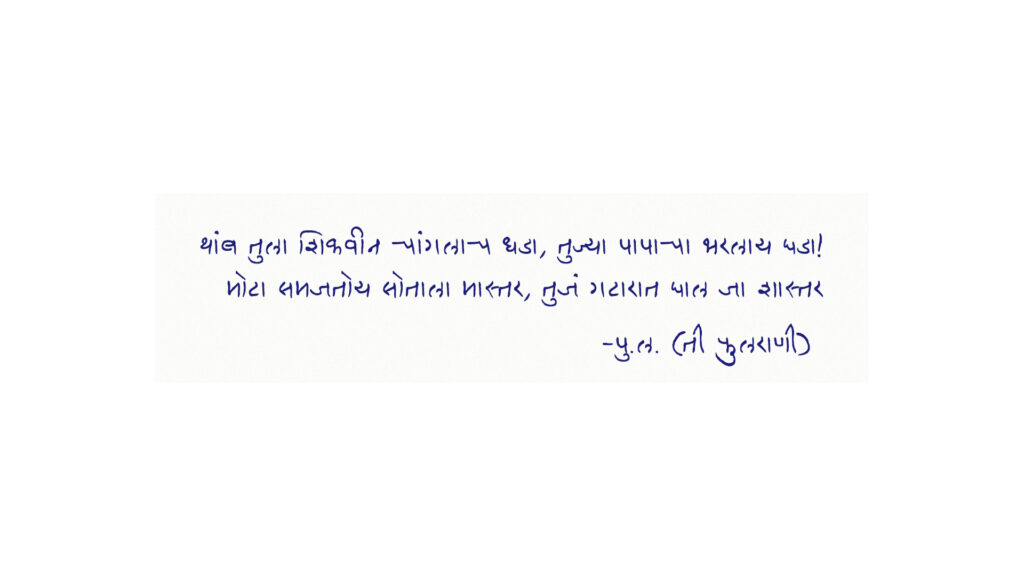 थांब तुला शिकवीन चांगलाच धडा, तुज्या पापाचा भरलाय घडा!
मोटा समजतोय सोताला मास्तर, तुजं गटारात घाल जा शास्तर
-पु.ल. (ती फुलराणी)